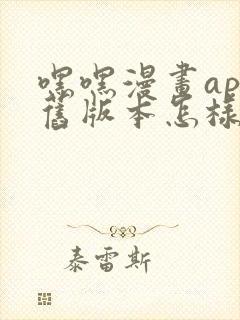 嘿嘿漫畫ap
舊版本怎樣
泰雷斯